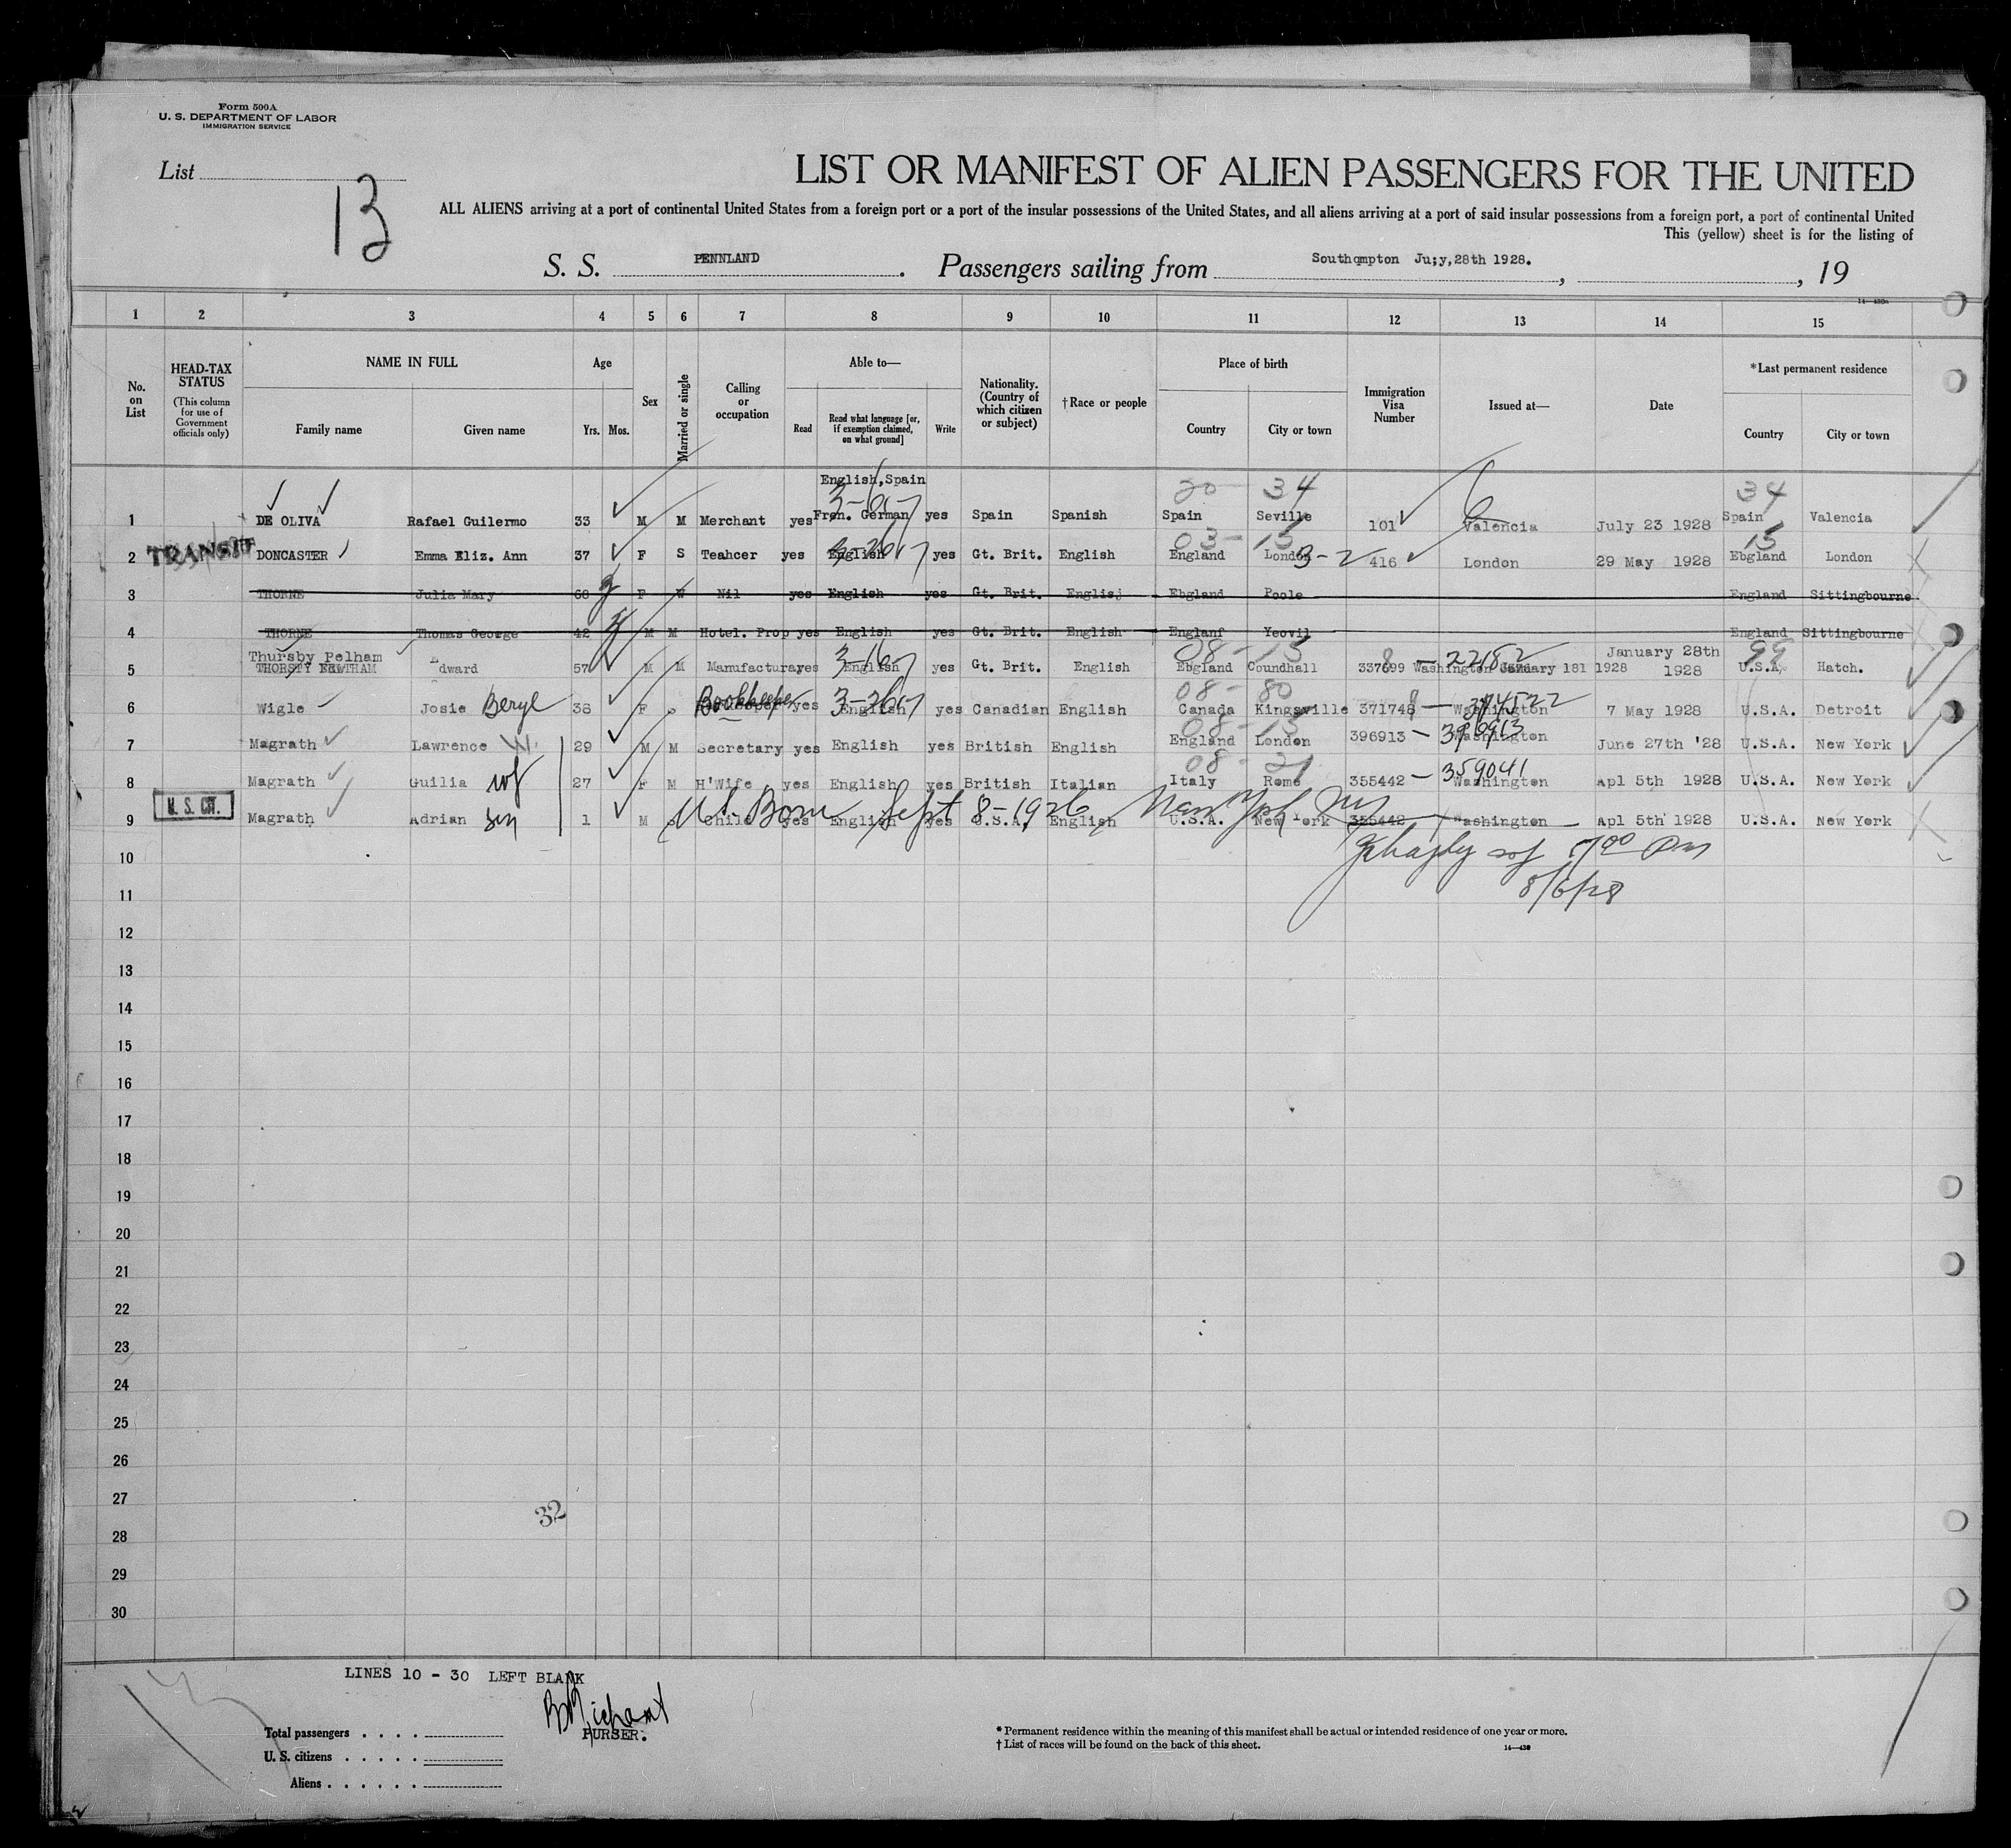 Form 500A
U. S. DEPARTMENT OF LABOR
IMMIGRATION SERVICE
List
13
LIST OR MANIFEST OF ALIEN PASSENGERS FOR THE UNITED
ALL ALIENS arriving at a port of continental United States from a foreign port or a port of the insular possessions of the United States, and all aliens arriving at a port of said insular possessions from a foreign port, a port of continental United
This (yellow) sheet is for the listing of
S. S. PENNLAND. Passengers sailing from Southqmpton Ju;y,28th 1928. , , 19
14—430a
1 2 3 4 5 6 7 8 9 10 11 12 13 14 15
No. on List
HEAD-TAX STATUS (This column for use of Government officials only)
NAME IN FULL
Family name Given name
Age
Yrs. Mos.
Sex
Married or single
Calling or occupation
Able to—
Read Read what language [or, if exemption claimed, on what ground] Write
Nationality. (Country of which citizen or subject)
†Race or people
Place of birth
Country City or town
Immigration Visa Number
Issued at—
Date
*Last permanent residence
Country City or town
English,Spain
20 34 34
1 DE OLIVA Rafael Guilermo 33 M M Merchant yes Fren. German yes Spain Spanish Spain Seville 101 Valencia July 23 1928 Spain Valencia
03 - 15 15
TRANSIT
2 DONCASTER Emma Eliz. Ann 37 F S Teahcer yes English yes Gt. Brit. English England London 3-2 416 London 29 May 1928 Ebgland London
3 THORNE Julia Mary 68 F W Nil yes English yes Gt. Brit. Englisj Ebgland Poole England Sittingbourne
4 THORNE Thomas George 42 M M Hotel. Prop yes English yes Gt. Brit. English Englanf Yeovil England Sittingbourne
Thursby Pelham 08 - 15 January 28th 99
5 Edward 57 M M Manufactura yes English yes Gt. Brit. English Ebgland Coundhall 337699 Washington January 181 1928 1928 U.S.A. Hatch.
08 - 80
6 Wigle Josie Beryl 38 F S Bookkeeper yes English yes Canadian English Canada Kingsville 371748 Washington 7 May 1928 U.S.A. Detroit
08 - 15
7 Magrath Lawrence W. 29 M M Secretary yes English yes British English England London 396913 - Washington June 27th '28 U.S.A. New York
08 - 21
8 Magrath Guilia wf 27 F M H'Wife yes English yes British Italian Italy Rome 355442 - 359041 Washington Apl 5th 1928 U.S.A. New York
U. S. CIT.
U.S. Born Sept 8-1926 New York
9 Magrath Adrian sn 1 M S Child yes English yes U.S.A. English U.S.A. New York 355442 Washington Apl 5th 1928 U.S.A. New York
7 00 Pm
8/6/28
10
11
12
13
14
15
16
17
18
19
20
21
22
23
24
25
26
27
32
28
29
30
LINES 10 - 30 LEFT BLANK
PURSER.
Total passengers . . . .
U. S. citizens . . . . .
Aliens . . . . . .
* Permanent residence within the meaning of this manifest shall be actual or intended residence of one year or more.
† List of races will be found on the back of this sheet.
14—430